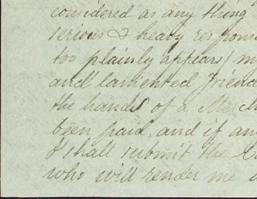 considered as any thing
serious & heavy respons
too plainly appears m
and lamented friend
the hands of a
been paid, and if an
I shall submit the
who will render me